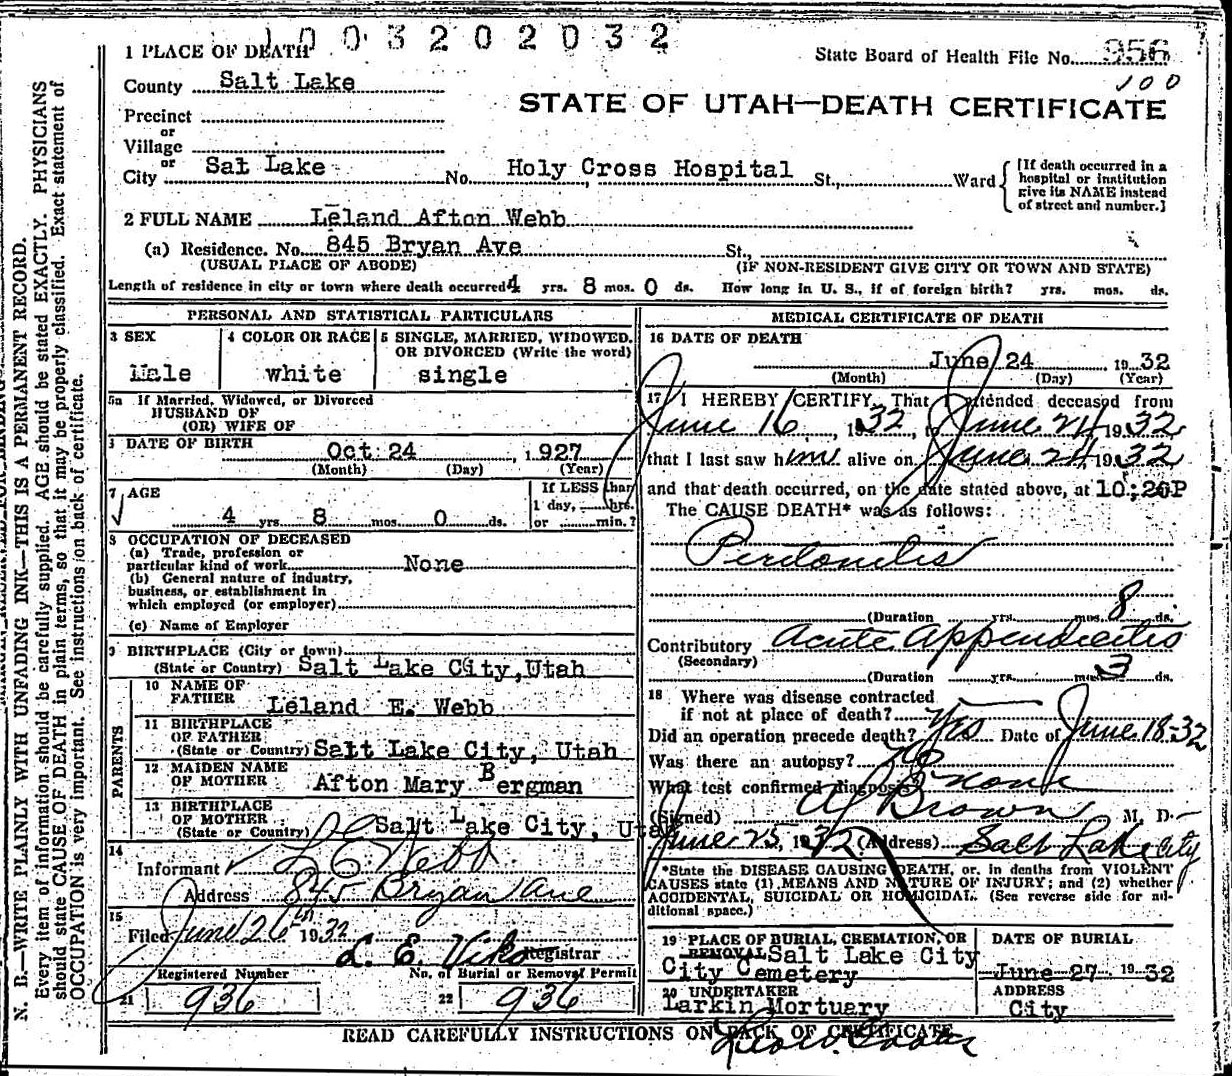 1003202032
1 PLACE OF DEATH
State Board of Health File No. 956
100
County Salt Lake
STATE OF UTAH—DEATH CERTIFICATE
Precinct
or
Village
or
City Sat Lake No. Holy Cross Hospital St., Ward
[If death occurred in a
hospital or institution
give its NAME instead
of street and number.]
2 FULL NAME Leland Afton Webb
(a) Residence. No. 845 Bryan Ave St.,
(USUAL PLACE OF ABODE) (IF NON-RESIDENT GIVE CITY OR TOWN AND STATE)
Length of residence in city or town where death occurred 4 yrs. 8 mos. 0 ds. How long in U. S., if of foreign birth? yrs. mos. ds.
PERSONAL AND STATISTICAL PARTICULARS
3 SEX
Male
4 COLOR OR RACE
white
5 SINGLE, MARRIED, WIDOWED,
OR DIVORCED (Write the word)
single
5a If Married, Widowed, or Divorced
HUSBAND OF
(OR) WIFE OF
6 DATE OF BIRTH
Oct 24, 1927
(Month) (Day) (Year)
7 AGE
4 yrs. 8 mos. 0 ds.
If LESS than
1 day, hrs.
or min.?
8 OCCUPATION OF DECEASED
(a) Trade, profession or
particular kind of work None
(b) General nature of industry,
business, or establishment in
which employed (or employer)
(c) Name of Employer
9 BIRTHPLACE (City or town)
(State or Country) Salt Lake City, Utah
PARENTS
10 NAME OF
FATHER Leland E. Webb
11 BIRTHPLACE
OF FATHER
(State or Country) Salt Lake City, Utah
12 MAIDEN NAME
OF MOTHER Afton Mary Bergman
13 BIRTHPLACE
OF MOTHER
(State or Country) Salt Lake City, Utah
14
Informant L E Webb
Address 845 Bryan Ave
15
Filed June 26th 1932
L. E. Viko Registrar
Registered Number No. of Burial or Removal Permit
21 936 22 936
MEDICAL CERTIFICATE OF DEATH
16 DATE OF DEATH
June 24 1932
(Month) (Day) (Year)
17 I HEREBY CERTIFY, That I attended deceased from
June 16, 1932, to June 24 1932
that I last saw him alive on June 24, 1932
and that death occurred, on the date stated above, at 10:20P
The CAUSE DEATH* was as follows:
Peritonitis
(Duration yrs. mos. 8 ds.
Contributory Acute Appendicitis
(Secondary)
(Duration yrs. mos. 3 ds.
18 Where was disease contracted
if not at place of death?
Did an operation precede death? Yes Date of June 18-32
Was there an autopsy? no
What test confirmed diagnosis? none
(Signed) Brown M. D.
June 25, 1932 (Address) Salt Lake City
*State the DISEASE CAUSING DEATH, or, in deaths from VIOLENT
CAUSES state (1) MEANS AND NATURE OF INJURY; and (2) whether
ACCIDENTAL, SUICIDAL OR HOMICIDAL. (See reverse side for ad-
ditional space.)
19 PLACE OF BURIAL, CREMATION, OR
REMOVAL Salt Lake City
City Cemetery
DATE OF BURIAL
June 27 1932
20 UNDERTAKER
Larkin Mortuary
ADDRESS
City
READ CAREFULLY INSTRUCTIONS ON BACK OF CERTIFICATE
N. B.—WRITE PLAINLY WITH UNFADING INK—THIS IS A PERMANENT RECORD.
Every item of information should be carefully supplied. AGE should be stated EXACTLY. PHYSICIANS
should state CAUSE OF DEATH in plain terms, so that it may be properly classified. Exact statement of
OCCUPATION is very important. See instructions on back of certificate.